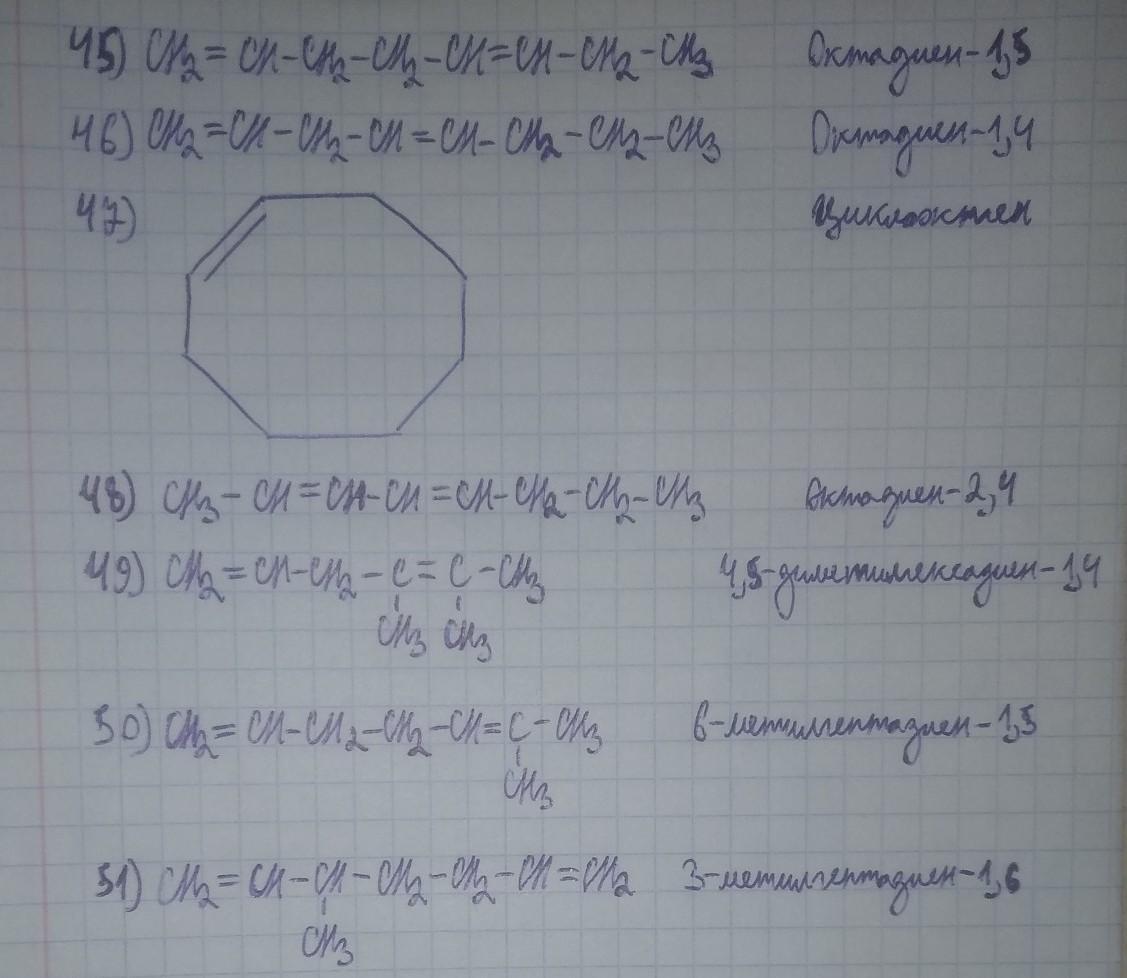 45) CH₂=CH-CH₂-CH₂-CH=CH-CH₂-CH₃ Октадиен-1,5
46) CH₂=CH-CH₂-CH=CH-CH₂-CH₂-CH₃ Октадиен-1,4
47) Циклооктен
48) CH₃-CH=CH-CH=CH-CH₂-CH₂-CH₃ Октадиен-2,4
49) CH₂=CH-CH₂-C=C-CH₃ 4,5-диметилгексадиен-1,4
CH₃ CH₃
50) CH₂=CH-CH₂-CH₂-CH=C-CH₃ 6-метилгептадиен-1,5
CH₃
51) CH₂=CH-CH-CH₂-CH₂-CH=CH₂ 3-метилгептадиен-1,6
CH₃